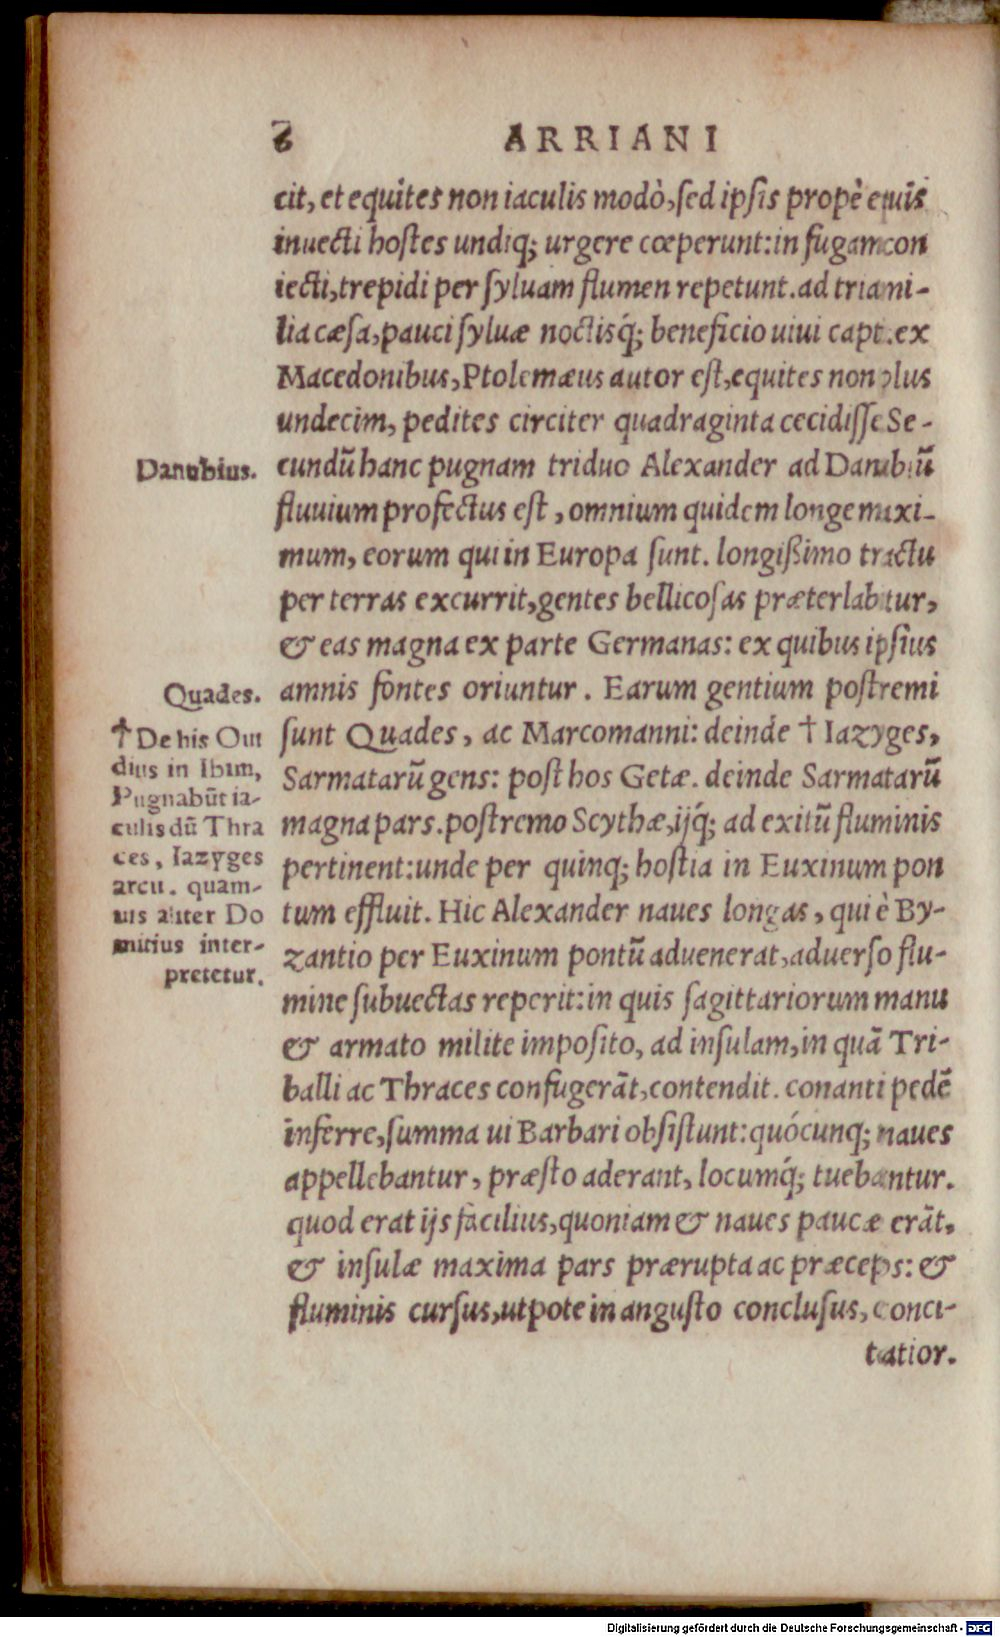 8 ARRIANI
cit, et equites non iaculis modò, sed ipsis propè equis
inuecti hostes undiq; urgere cœperunt: in fugam con
iecti, trepidi per syluam flumen repetunt. ad tria mi-
lia cæsa, pauci syluæ noctisq́; beneficio uiui capti. ex
Macedonibus, Ptolemæus autor est, equites non plus
undecim, pedites circiter quadraginta cecidisse Se-
cundũ hanc pugnam triduo Alexander ad Danubiũ
fluuium profectus est, omnium quidem longe maxi-
mum, eorum qui in Europa sunt. longißimo tractu
per terras excurrit, gentes bellicosas præterlabitur,
& eas magna ex parte Germanas: ex quibus ipsius
amnis fontes oriuntur. Earum gentium postremi
sunt Quades, ac Marcomanni: deinde † Iazyges,
Sarmatarũ gens: post hos Getæ. deinde Sarmatarũ
magna pars. postremo Scythæ, ijq́; ad exitũ fluminis
pertinent: unde per quinq; hostia in Euxinum pon
tum effluit. Hic Alexander naues longas, qui è By-
zantio per Euxinum pontũ aduenerat, aduerso flu-
mine subuectas reperit: in quis sagittariorum manu
& armato milite imposito, ad insulam, in quã Tri-
balli ac Thraces confugerãt, contendit. conanti pedẽ
inferre, summa ui Barbari obsistunt: quócunq; naues
appellebantur, præsto aderant, locumq́; tuebantur.
quod erat ijs facilius, quoniam & naues paucæ erãt,
& insulæ maxima pars prærupta ac præceps: &
fluminis cursus, utpote in angusto conclusus, conci-
tatior.
Danubius.
Quades.
† De his Oui
dius in Ibim,
Pugnabũt ia-
culis dũ Thra
ces, Iazyges
arcu. quam-
uis aliter Do
mitius inter-
pretetur.
Digitalisierung gefördert durch die Deutsche Forschungsgemeinschaft - DFG